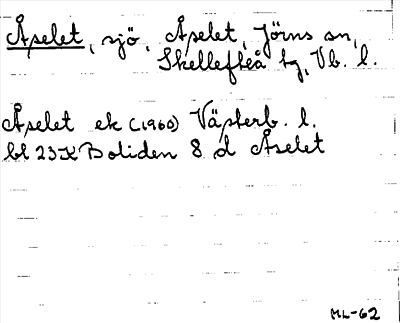 Åselet, sjö, Åselet, Jörns sn,
Skellefteå tg, Vb. l.
Åselet ek (1960) Västerb. l.
bl 23K Boliden 8 d Åselet
ML-62